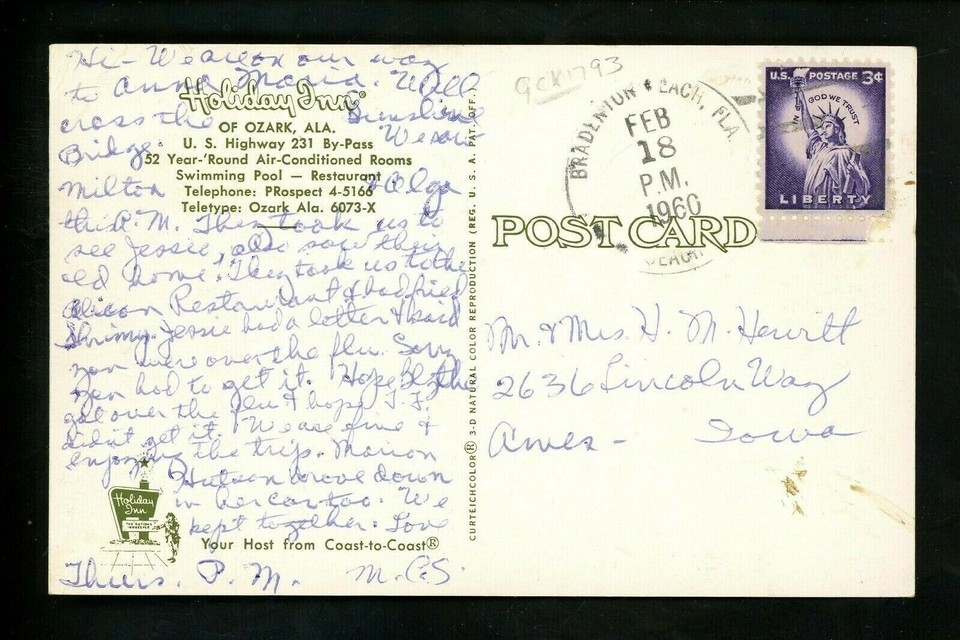 Hi - We are on our way
to Anna Maria. Will
Holiday Inn®
cross the Sunshine
OF OZARK, ALA.
We saw
U. S. Highway 231 By-Pass
Bridge.
52 Year-'Round Air-Conditioned Rooms
Swimming Pool — Restaurant
Milton & Olga
Telephone: PRospect 4-5166
Teletype: Ozark Ala. 6073-X
this P.M. They took us to
see Jessie, also saw their
old home. They took us to the
Restaurant & had fried
Shrimp. Jessie had a letter & said
you were over the flu. Sorry
you had to get it. Hope the
got over the flu & hope
didn't get it. We are fine &
enjoying the trip. Marion
Hutson drove down
in her car too. We
kept together. Love
Holiday Inn
Your Host from Coast-to-Coast®
Thurs. P.M. M.C.S.
CURTEICHCOLOR® 3-D NATURAL COLOR REPRODUCTION (REG. U. S. A. PAT. OFF.)
9CK1793
BRADENTON BEACH, FLA.
FEB
18
P.M.
1960
U.S. POSTAGE 3¢
IN GOD WE TRUST
LIBERTY
POST CARD
Mr. & Mrs. H. M. Hewitt
2636 Lincoln Way
Ames - Iowa